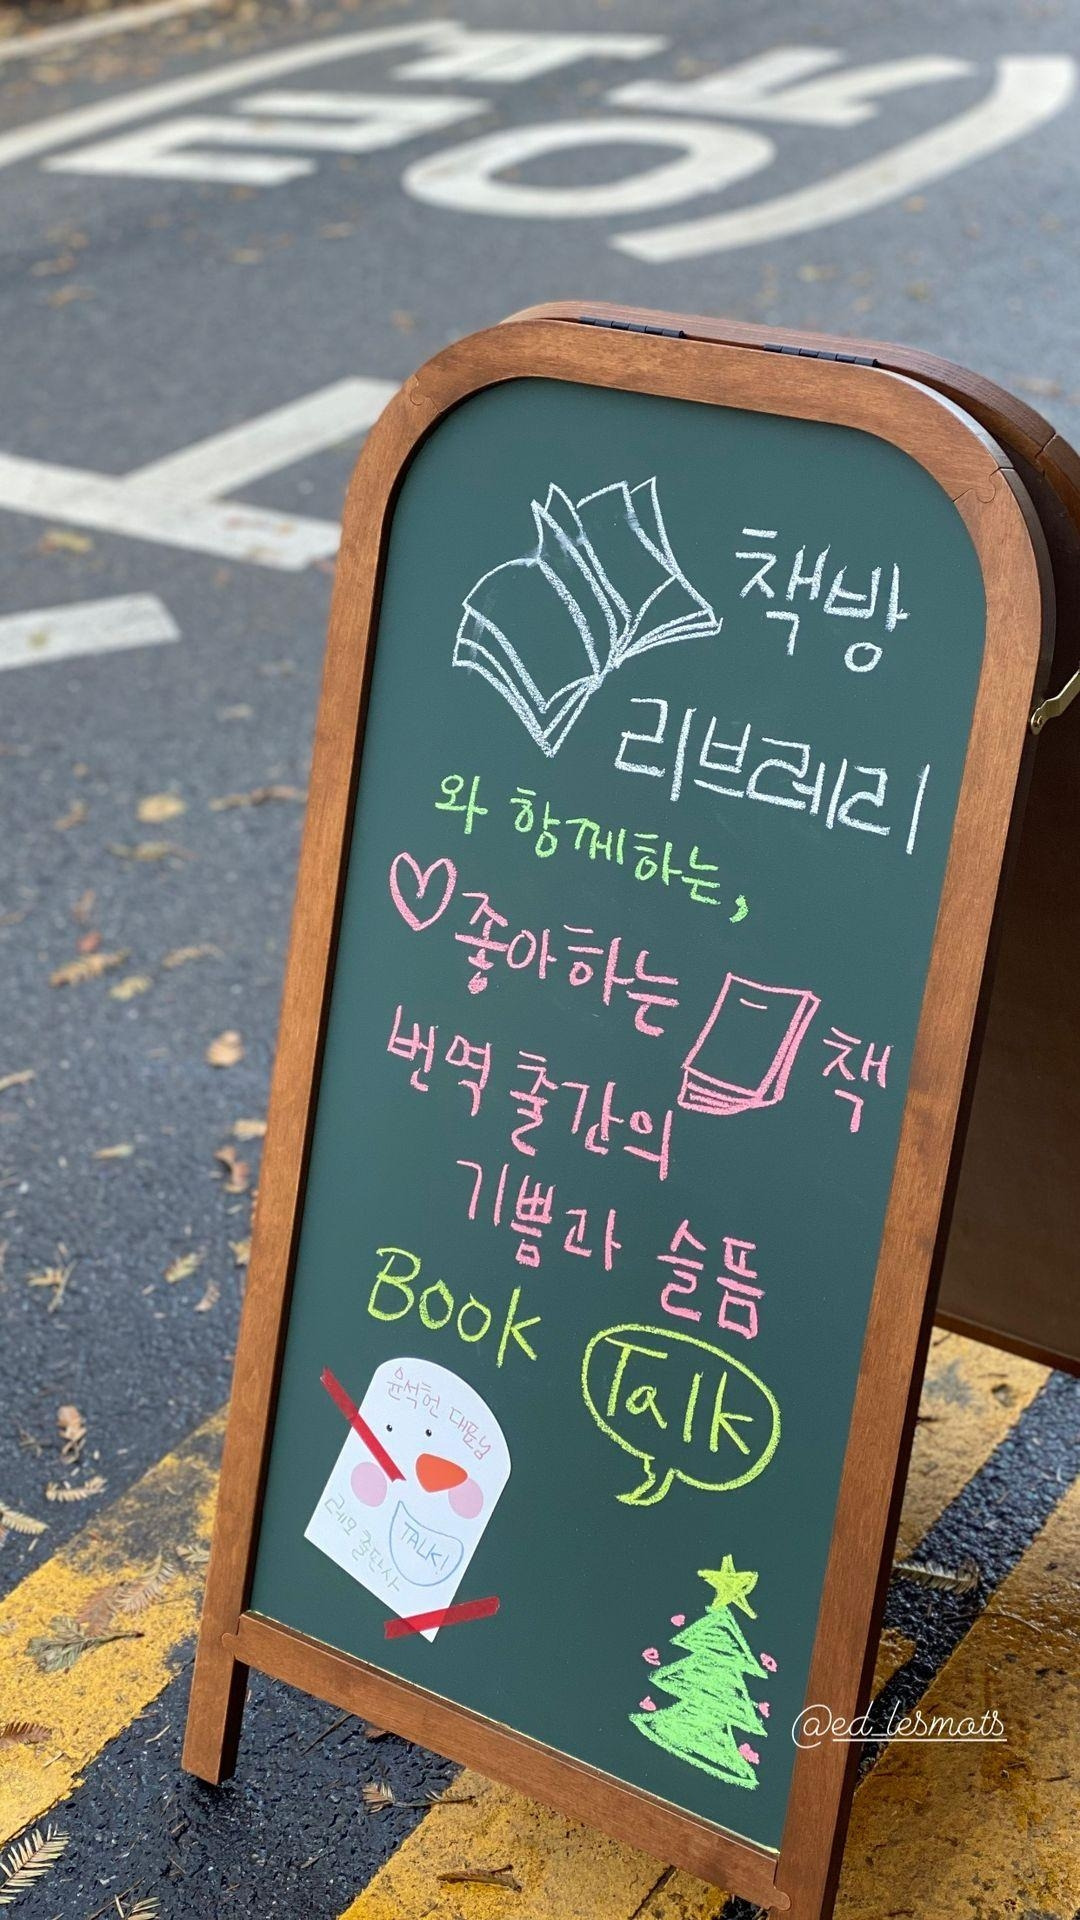 책방
리브레리
와 함께하는,
좋아하는 책
번역 출간의
기쁨과 슬픔
Book
Talk
윤석헌 대표님
TALK!
레모 출판사
@ed_lesmots